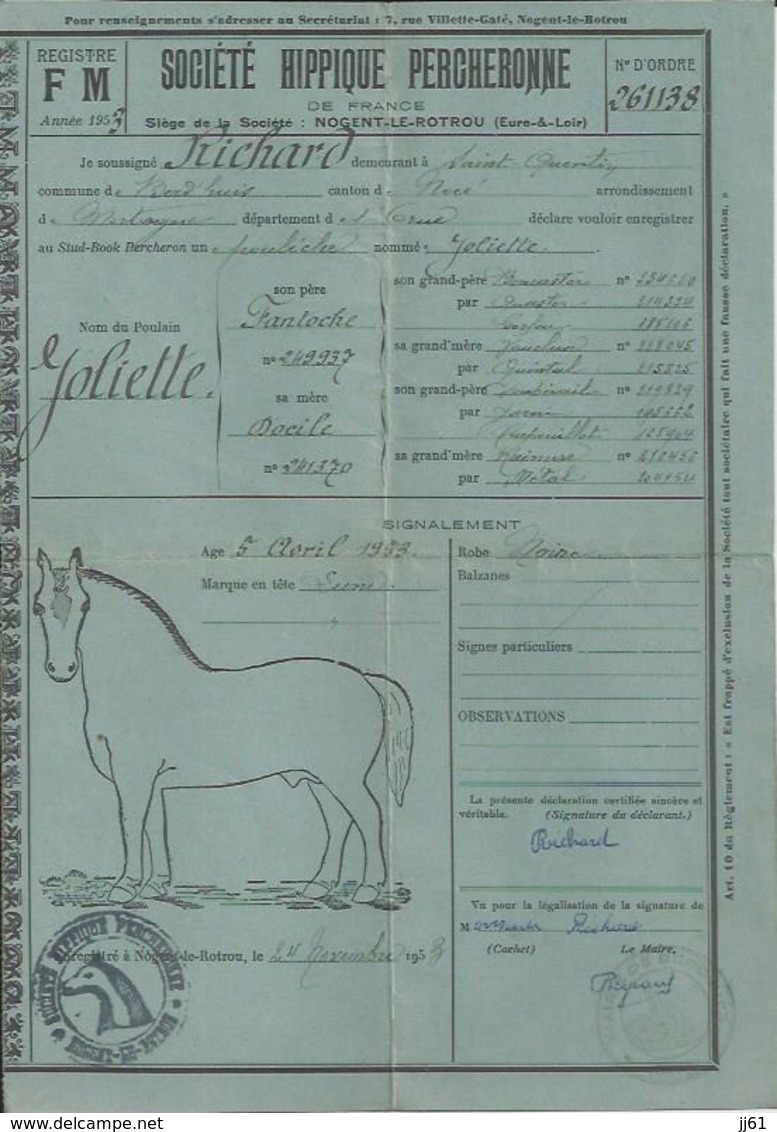 Pour renseignements s'adresser au Secrétariat : 7, rue Villette-Gaté, Nogent-le-Rotrou
REGISTRE
F M
Année 1953
SOCIÉTÉ HIPPIQUE PERCHERONNE
DE FRANCE
Siège de la Société : NOGENT-LE-ROTROU (Eure-&-Loir)
N° D'ORDRE
261138
Je soussigné Richard demeurant à Saint-Quentin
commune de Berd'huis canton de Nocé arrondissement
de Mortagne département de l'Orne déclare vouloir enregistrer
au Stud-Book Percheron un e pouliche nommé e Joliette.
Nom du Poulain
Joliette.
son père
Fantoche
n° 249937
sa mère
Docile
n° 241370
son grand-père n°
par
sa grand'mère n° 228045
par Quintal 215825
son grand-père n° 219829
par
sa grand'mère n°
par Métal
SIGNALEMENT
Age 5 Avril 1953.
Marque en tête
Robe Noire
Balzanes
Signes particuliers
OBSERVATIONS
La présente déclaration certifiée sincère et
véritable. (Signature du déclarant.)
Richard
Vu pour la légalisation de la signature de
M Richard
(Cachet) Le Maire,
Enregistré à Nogent-le-Rotrou, le 24 Novembre 1953
SOCIÉTÉ HIPPIQUE PERCHERONNE
NOGENT-LE-ROTROU
Art. 10 du Règlement : « Est frappé d'exclusion de la Société tout sociétaire qui fait une fausse déclaration. »
jj61